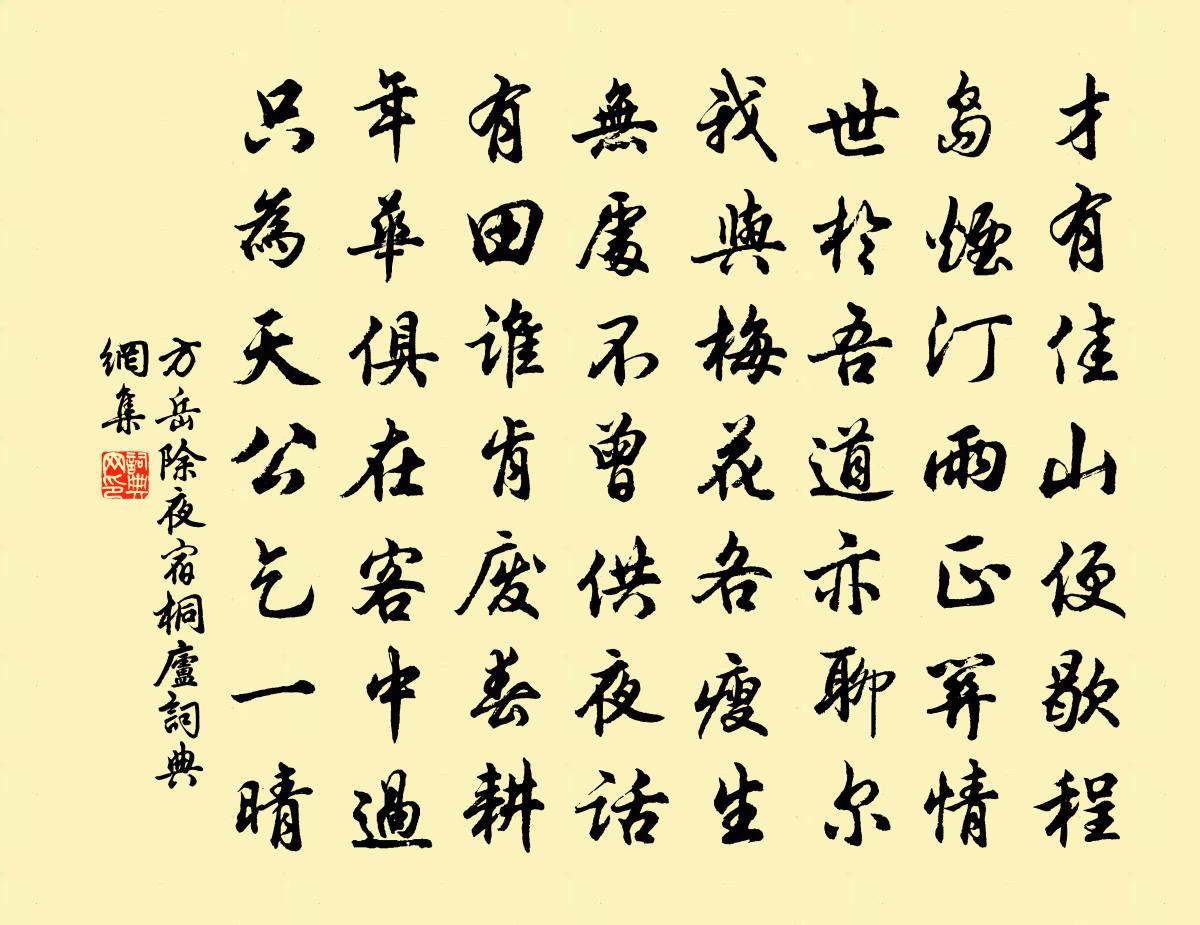 才有佳山便歇程
島煙汀雨正關情
世於吾道亦聊尔
我與梅花各瘦生
無處不曾供夜話
有田誰肯廢春耕
年華俱在客中過
只為天公乞一晴
方岳除夜宿桐廬詞典
網集
詞典
网印